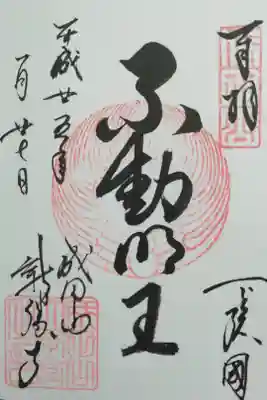 奉拝
下総國
不動明王
平成廿五年
一月廿七日
成田山
新勝寺